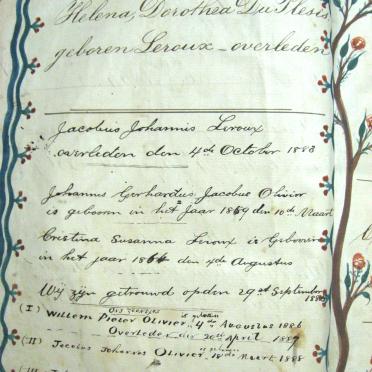 Helena, Dorothea Du Plesis
geboren Leroux - overleden
Jacobus Johannis Leroux
overleden den 4de October 1888
Johannes Gerhardus Jacobus Olivier
is gebooren in het Jaar 1859 den 10de Maart
Cristina Susanna Leroux is Gebooren
in het jaar 1864 den 4de Augustus
Wij zijn getrouwd op den 29ste September
(I) Willem Pieter Olivier 4de Augustus 1886
Overleden 20ste April 1887
(II) Jacobus Johannes Olivier 18de Maart 1888